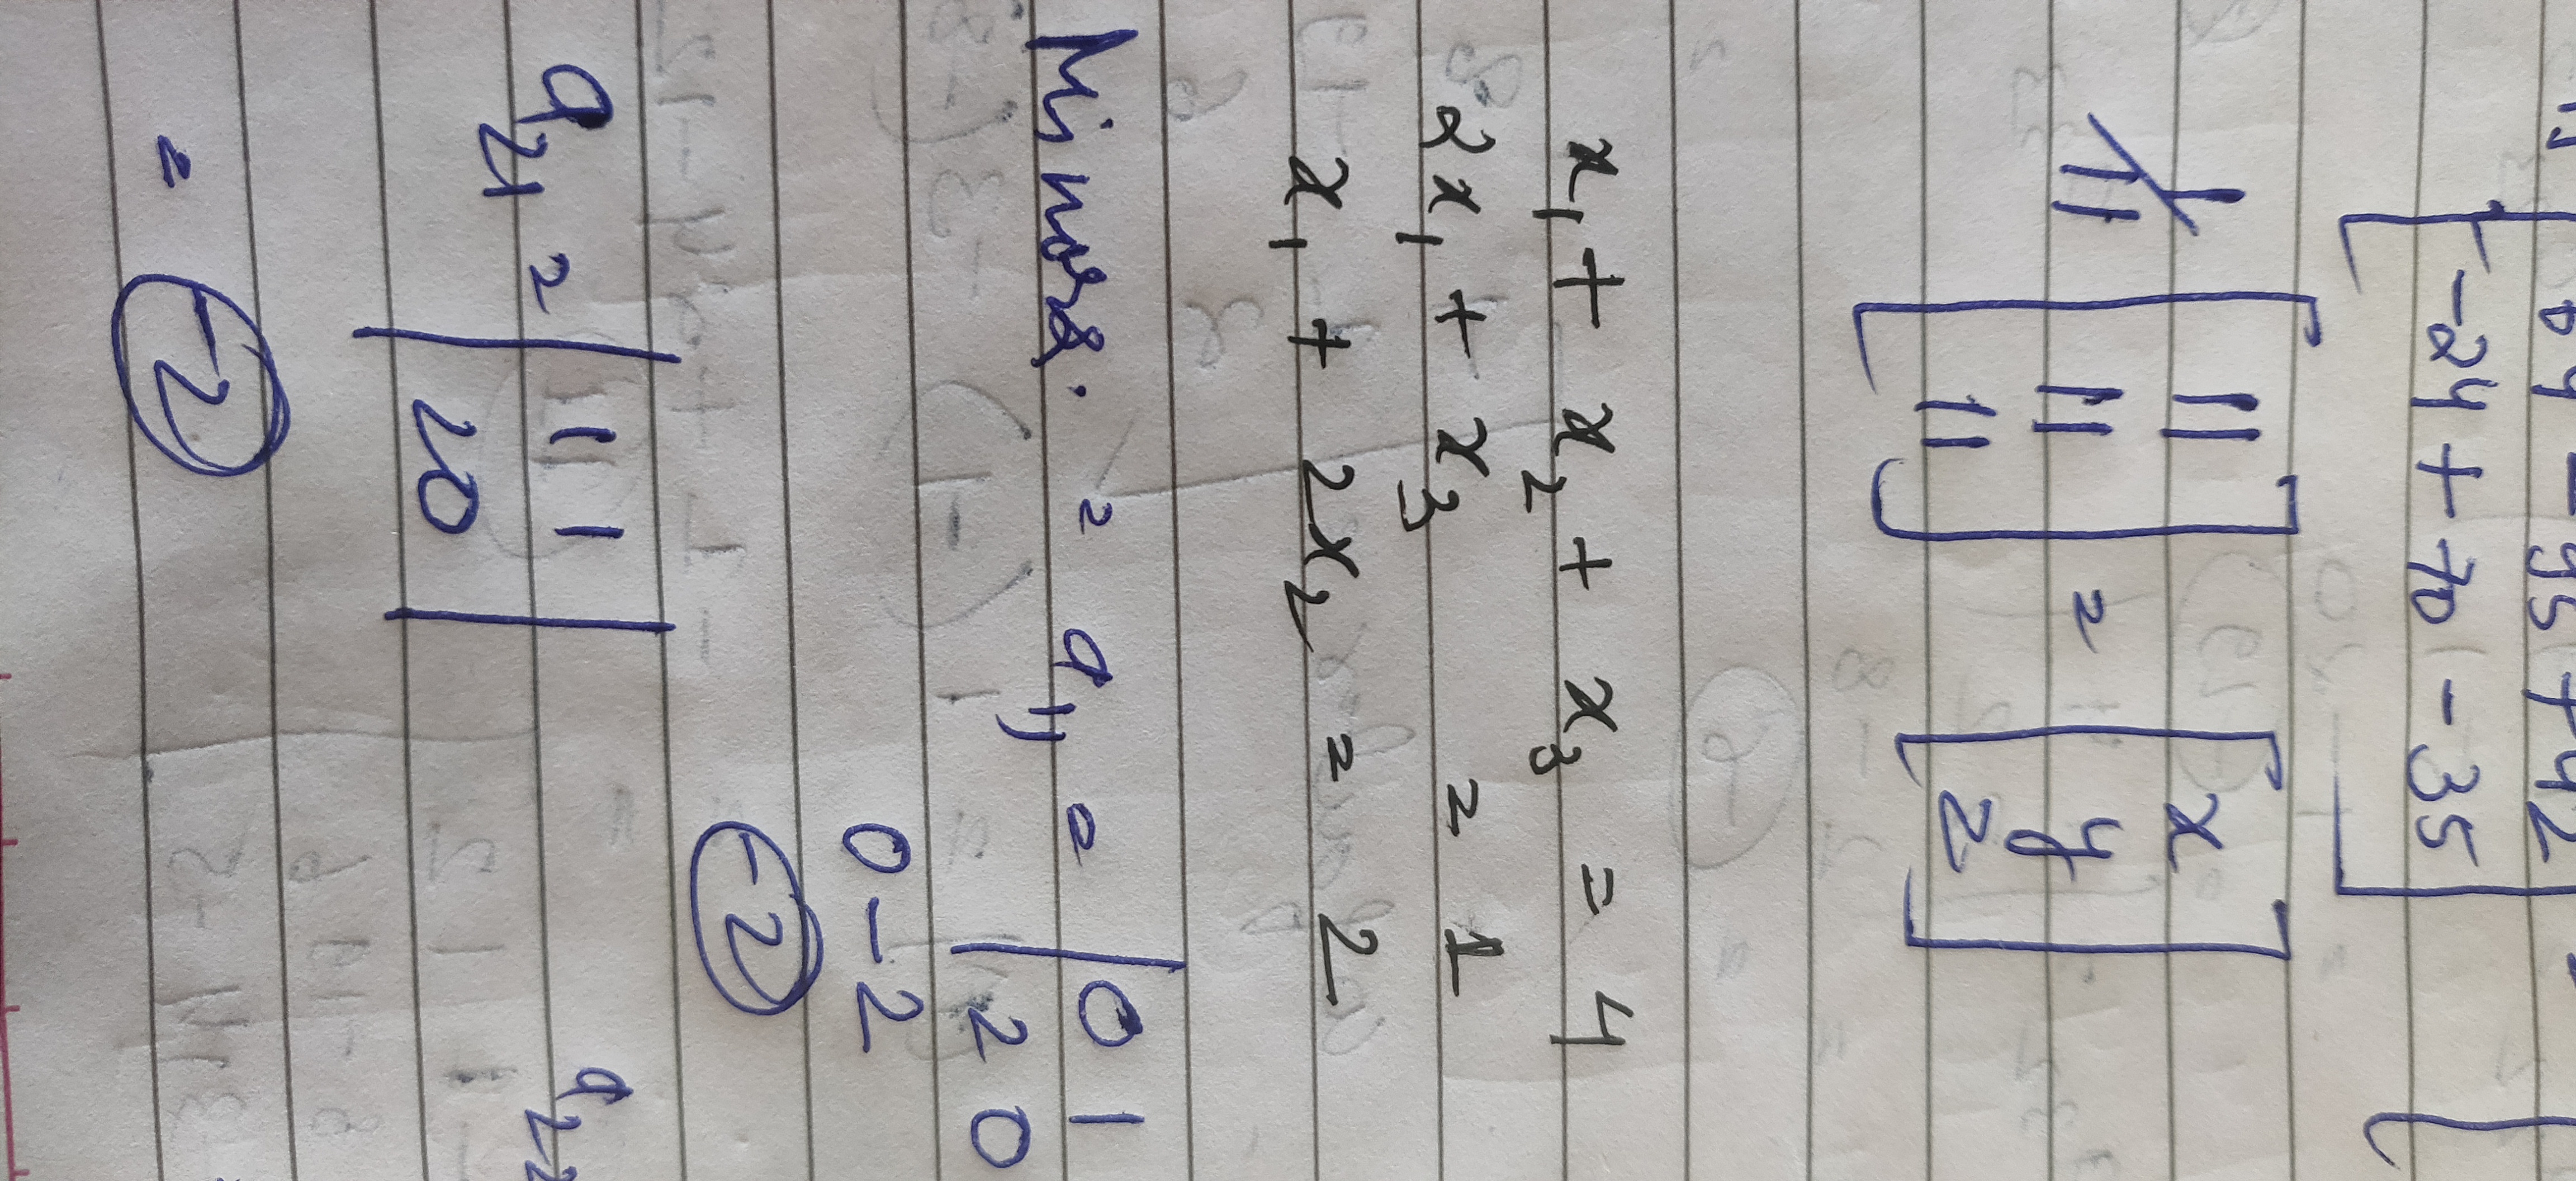 -24 + 70 - 35
1/11 [11
11
11] = [x
y
z]
x₁ + x₂ + x₃ = 4
2x₁ + x₃ = 1
x₁ + 2x₂ = 2
Minors. = a₁₁ = |0 1
2 0
0 - 2
-2
a₂₁ = |1 1
2 0|
= -2
a₂₂